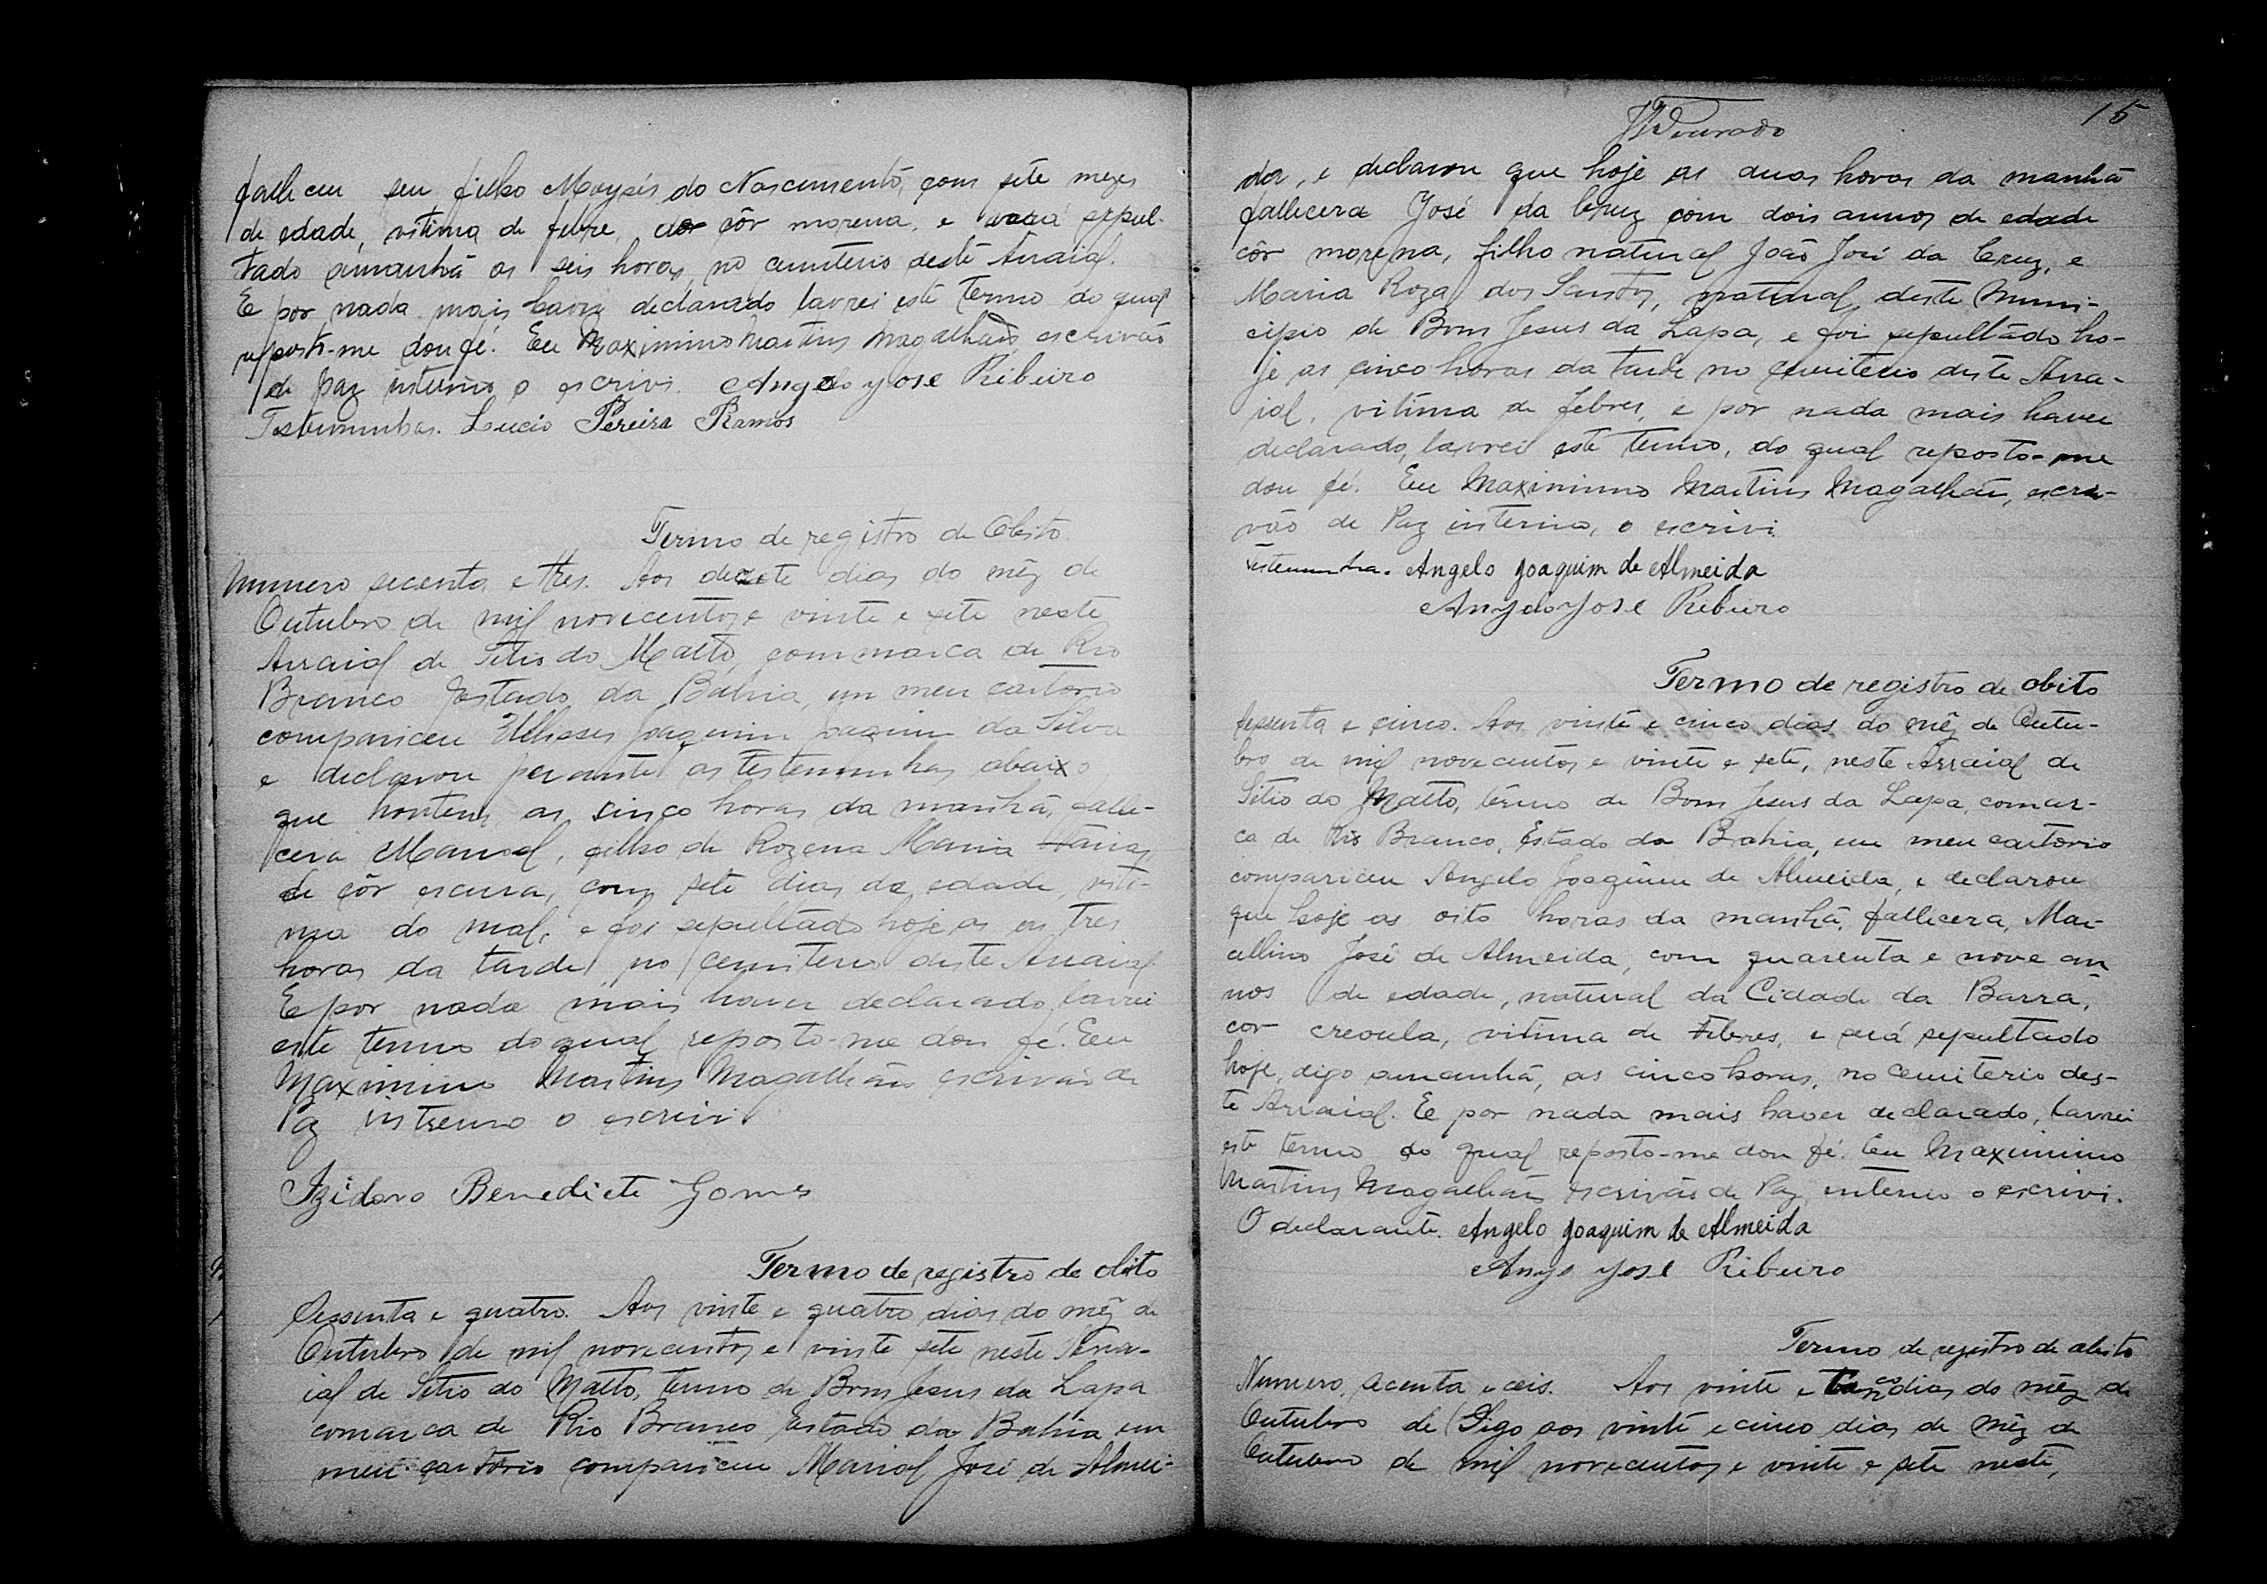 falleceu seu filho Moysés do Nascimento, com sete mezes
de edade, vitima de febre, de côr morena, e será sepul-
tado amanhã as seis horas, no cemiterio deste Arraial.
E por nada mais haver declarado lavrei este termo do qual
reposto-me dou fé. Eu Maximino Martins Magalhães, escrivão
de paz interino o escrivi. Angelo José Ribeiro
Testemunhas. Lucio Pereira Ramos
Termo de registro de Obito
Numero secenta e tres. Aos dezete dias do mêz de
Outubro de mil novecentos e vinte e sete neste
Arraial de Sitio do Matto, commarca de Rio
Branco Estado da Bahia, em meu cartorio
compariceu Ulisses Joaquim Joaquim da Silva
e declarou perante as testemunhas abaixo
que hontem as cinco horas da manhã, falle-
cera Manoel, filho de Rozena Maria
de côr escura, com sete dias de edade, viti-
ma do mal, e foi sepultado hoje as as tres
horas da tarde, no cemiterio deste Arraial.
E por nada mais haver declarado, lavrei
este termo do qual reposto-me dou fé. Eu
Maximino Martins Magalhães escrivão de
Paz interino o escrivi.
Izidoro Benedicto Gomes
Termo de registro de obito
Sessenta e quatro. Aos vinte e quatro dias do mêz de
Outubro de mil novecentos e vinte sete neste Arra-
ial de Sitio do Matto, termo de Bom Jesus da Lapa
comarca de Rio Branco Estado da Bahia em
meu cartorio compariceu Manoel José de Almei-
15
Dourado
da, e declarou que hoje as duas horas da manhã
fallecera José da Cruz com dois annos de edade
côr morena, filho natural João José da Cruz, e
Maria Roza dos Santos, natural deste Muni-
cipio de Bom Jesus da Lapa, e foi sepultado ho-
je as cinco horas da tarde no cemiterio deste Arra-
ial, vitima de febres, e por nada mais haver
declarado, lavrei este termo, do qual reposto-me
dou fé. Eu Maximino Martins Magalhães, escri-
vão de Paz interino, o escrivi.
testemunha. Angelo Joaquim de Almeida
Angelo José Ribeiro
Termo de registro de obito
sessenta e cinco. Aos vinte e cinco dias do mêz de Outu-
bro de mil novecentos e vinte e sete, neste Arraial de
Sitio do Matto, têrmo de Bom Jesus da Lapa, comar-
ca de Rio Branco, Estado da Bahia, em meu cartorio
compariceu Angelo Joaquim de Almeida, e declarou
que hoje as oito horas da manhã, fallecera, Mar-
cellino José de Almeida, com quarenta e nove an
nos de edade, natural da Cidade da Barra,
cor creoula, vitima de Febres, e será sepultado
hoje, digo amanhã, as cinco horas, no cemiterio des-
te Arraial. E por nada mais haver declarado, lavrei
este termo do qual reposto-me dou fé. Eu Maximino
Martins Magalhães escrivão de Paz interino o escrivi.
O declarante. Angelo Joaquim de Almeida
Angelo José Ribeiro
Termo de registro de obito
Numero, secenta e ceis. Aos vinte e dias do mêz de
Outubro de Digo aos vinte e cinco dias de mêz de
Outubro de mil novecentos e vinte e sete neste,